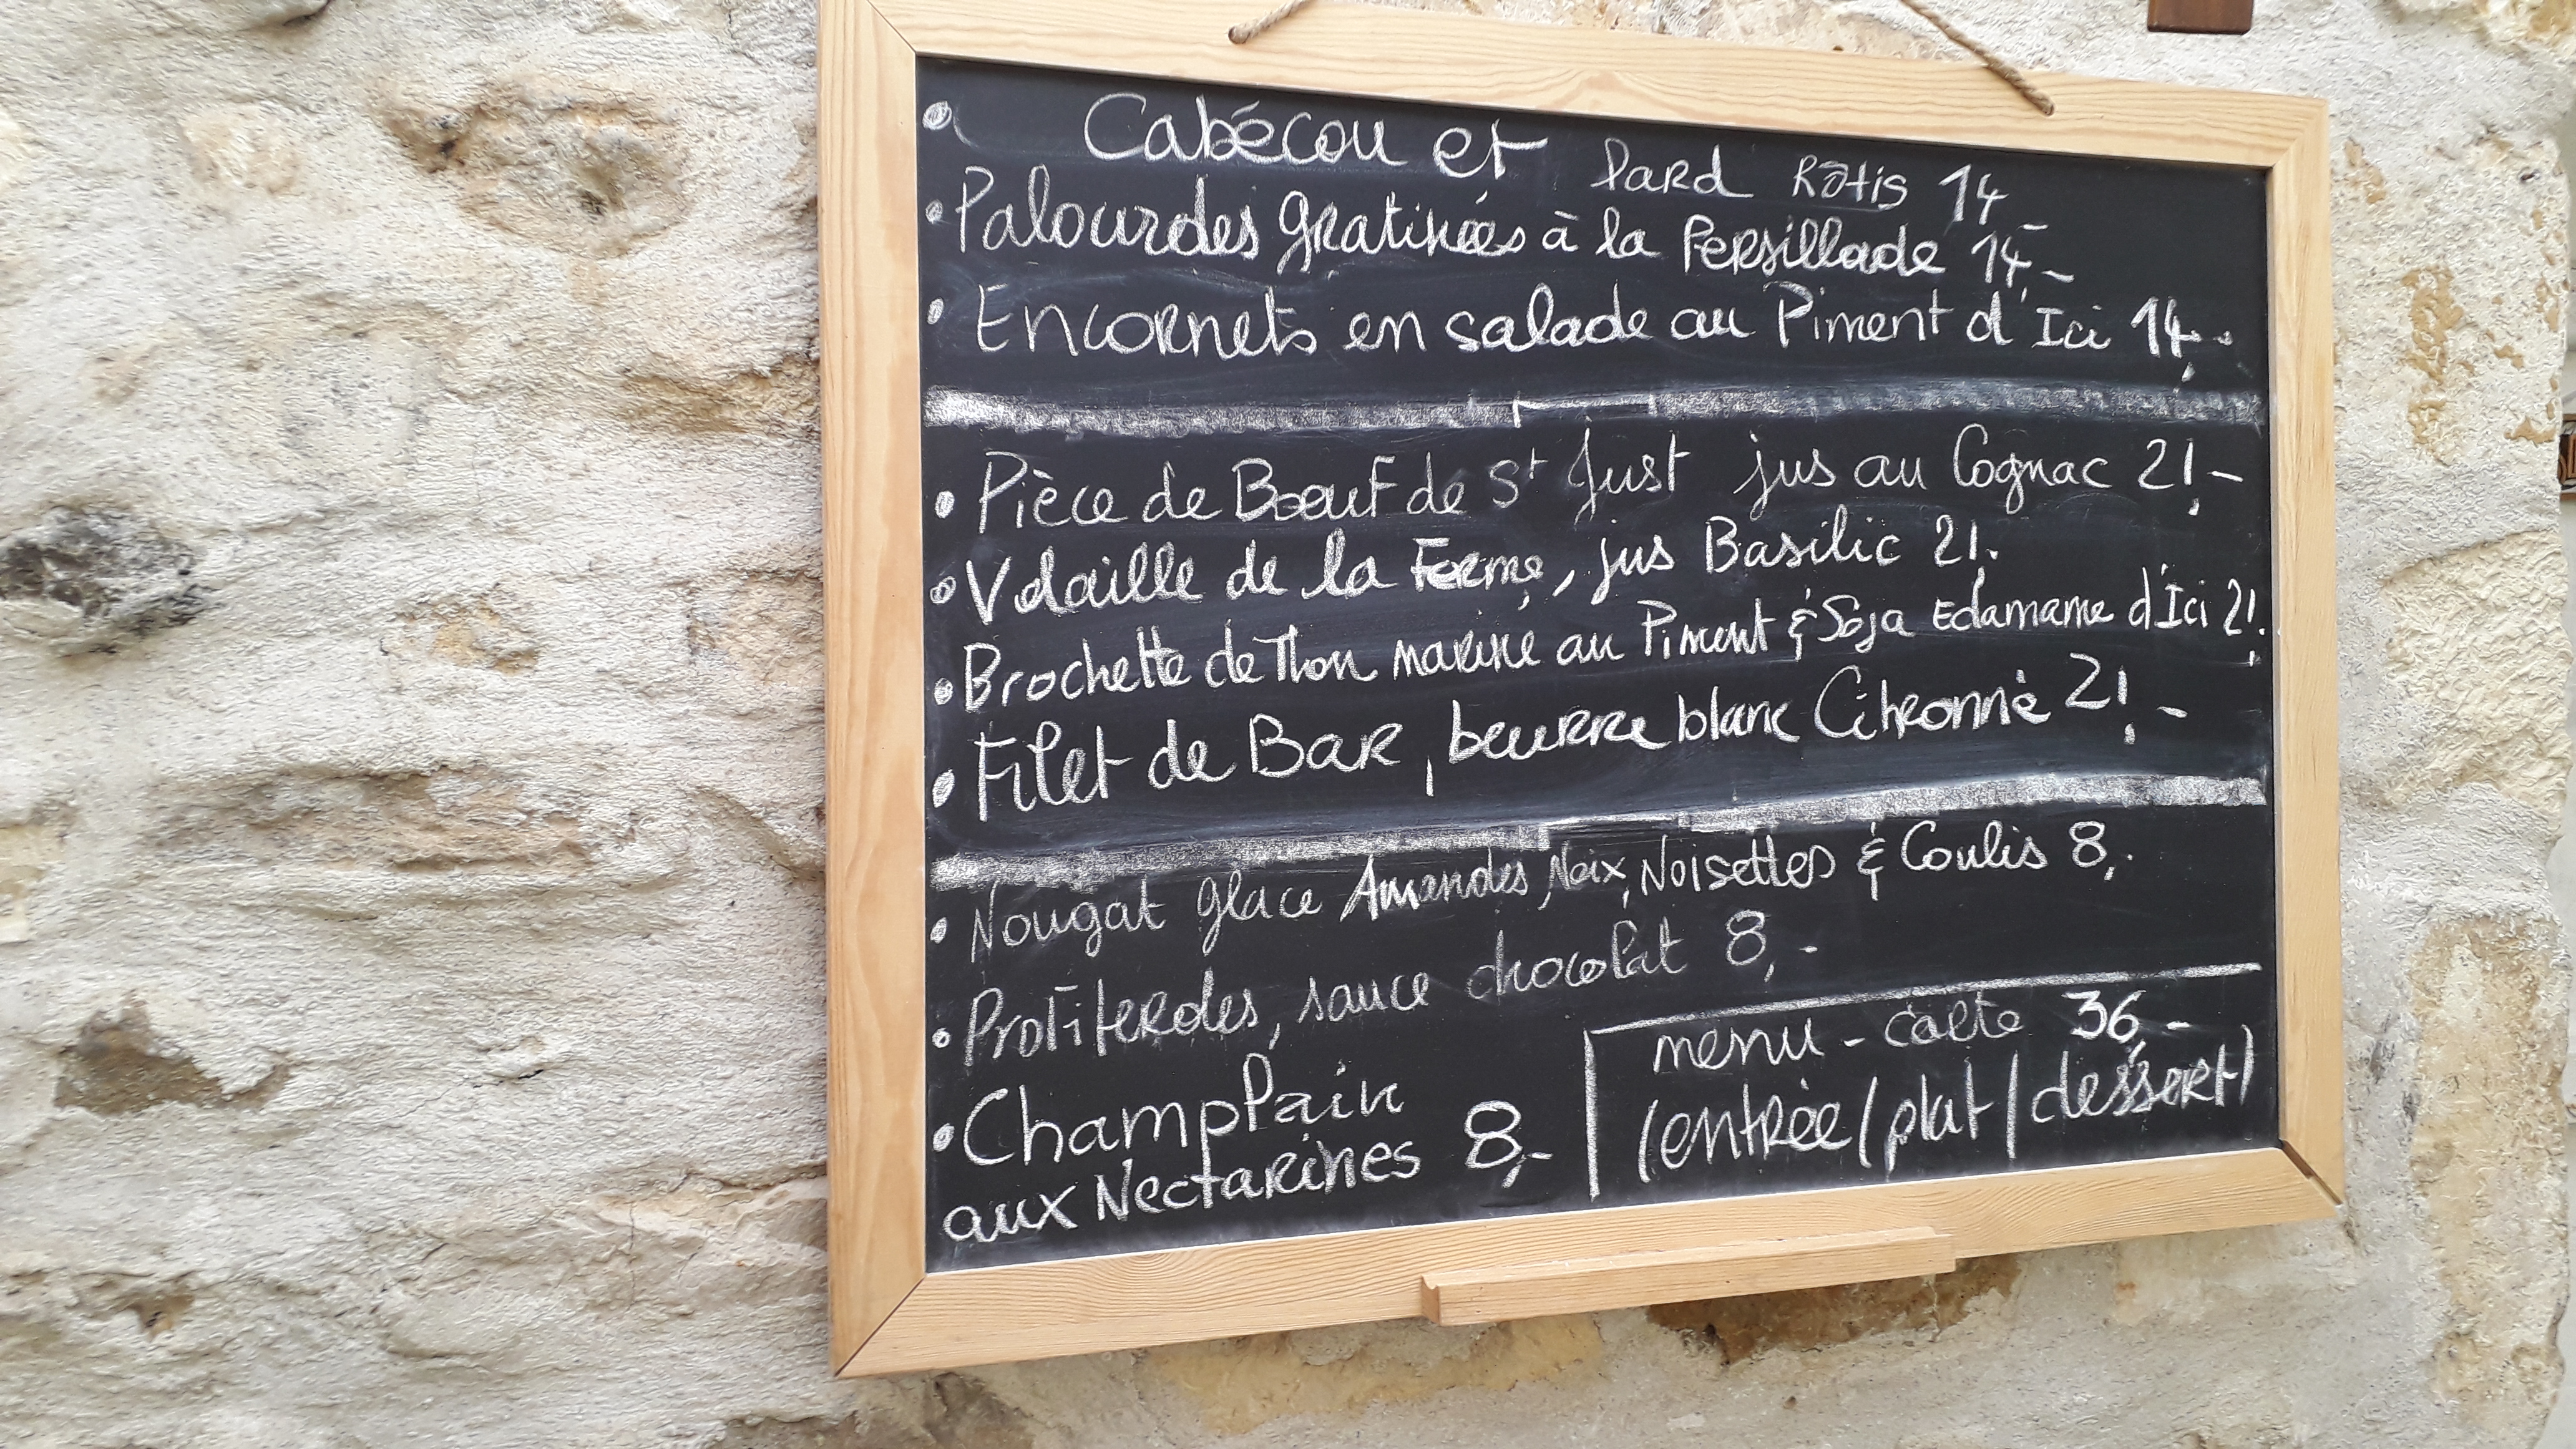 • Cabécou et lard Rôtis 14,-
• Palourdes gratinées à la Persillade 14,-
• Encornets en salade au Piment d'Ici 14,-
• Pièce de Boeuf de St Just jus au Cognac 21,-
• Volaille de la Ferme, jus Basilic 21,-
• Brochette de Thon mariné au Piment & Soja Edamame d'Ici 21,-
• Filet de Bar, beurre blanc Citronné 21,-
• Nougat glacé Amandes, Noix, Noisettes & Coulis 8,-
• Profiteroles, sauce chocolat 8,-
• Champlain
aux Nectarines 8,-
menu-carte 36,-
(entrée/plat/dessert)